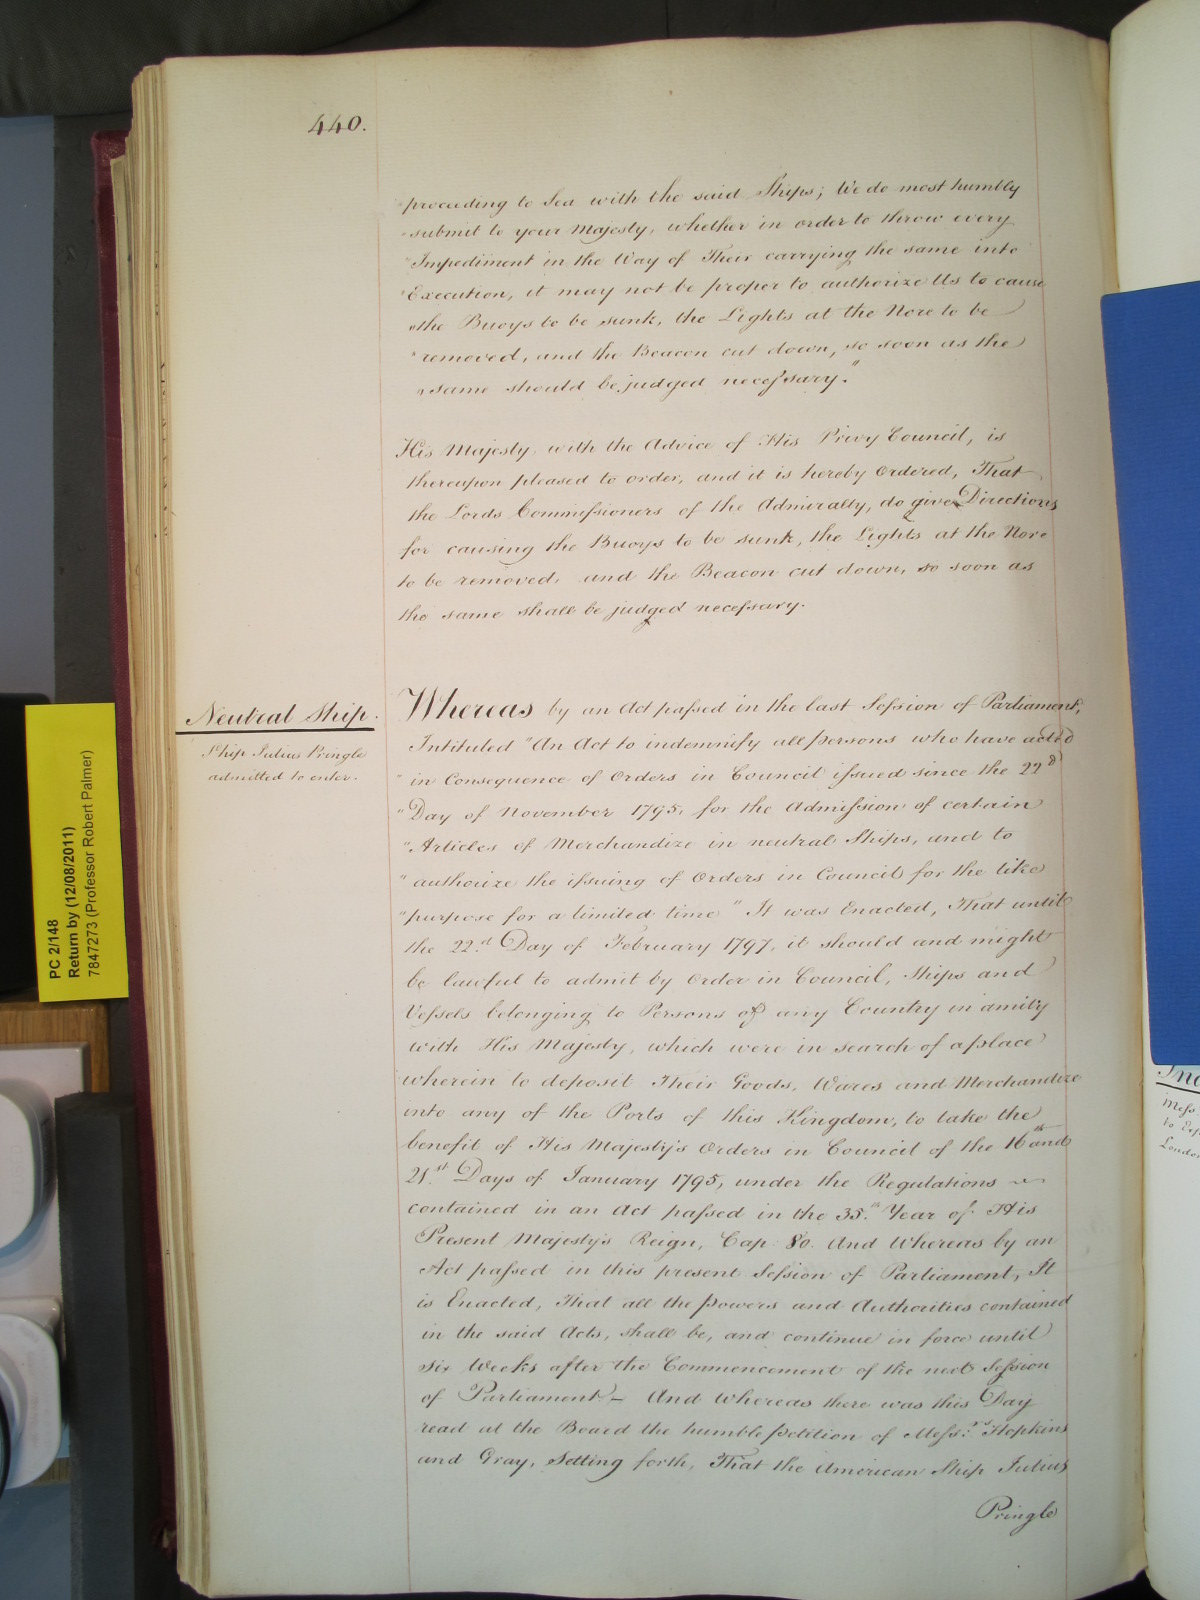 440.
"proceeding to Sea with the said Ships; We do most humbly
"submit to your Majesty, whether in order to throw every
"Impediment in the Way of Their carrying the same into
"Execution, it may not be proper to authorize Us to cause
"the Buoys to be sunk, the Lights at the Nore to be
"removed, and the Beacon cut down, so soon as the
"same should be judged necessary."
His Majesty, with the Advice of His Privy Council, is
thereupon pleased to order, and it is hereby Ordered, That
the Lords Commissioners of the Admiralty, do give Directions
for causing the Buoys to be sunk, the Lights at the Nore
to be removed, and the Beacon cut down, so soon as
the same shall be judged necessary.
Neutral Ship.
Ship Julius Pringle
admitted to enter.
Whereas by an Act passed in the last Session of Parliament,
Intituled "An Act to indemnify all persons who have acted
"in Consequence of Orders in Council issued since the 22d
"Day of November 1795, for the Admission of certain
"Articles of Merchandize in neutral Ships, and to
"authorize the issuing of Orders in Council for the like
"purpose for a limited time" It was Enacted, That until
the 22.d Day of February 1797, it should and might
be lawful to admit by Order in Council, Ships and
Vessels belonging to Persons of any Country in amity
with His Majesty, which were in search of a place
wherein to deposit Their Goods, Wares and Merchandize
into any of the Ports of this Kingdom, to take the
benefit of His Majesty's Orders in Council of the 16th and
21.st Days of January 1795, under the Regulations
contained in an Act passed in the 35.th Year of His
Present Majesty's Reign, Cap 80. And Whereas by an
Act passed in this present Session of Parliament, It
is Enacted, That all the powers and Authorities contained
in the said Acts, shall be, and continue in force until
six Weeks after the Commencement of the next Session
of Parliament – And Whereas there was this Day
read at the Board the humble petition of Mess.rs Hopkins
and Gray, Setting forth, That the American Ship Julius
Pringle
PC 2/148
Return by (12/08/2011)
7847273 (Professor Robert Palmer)
Mess
London